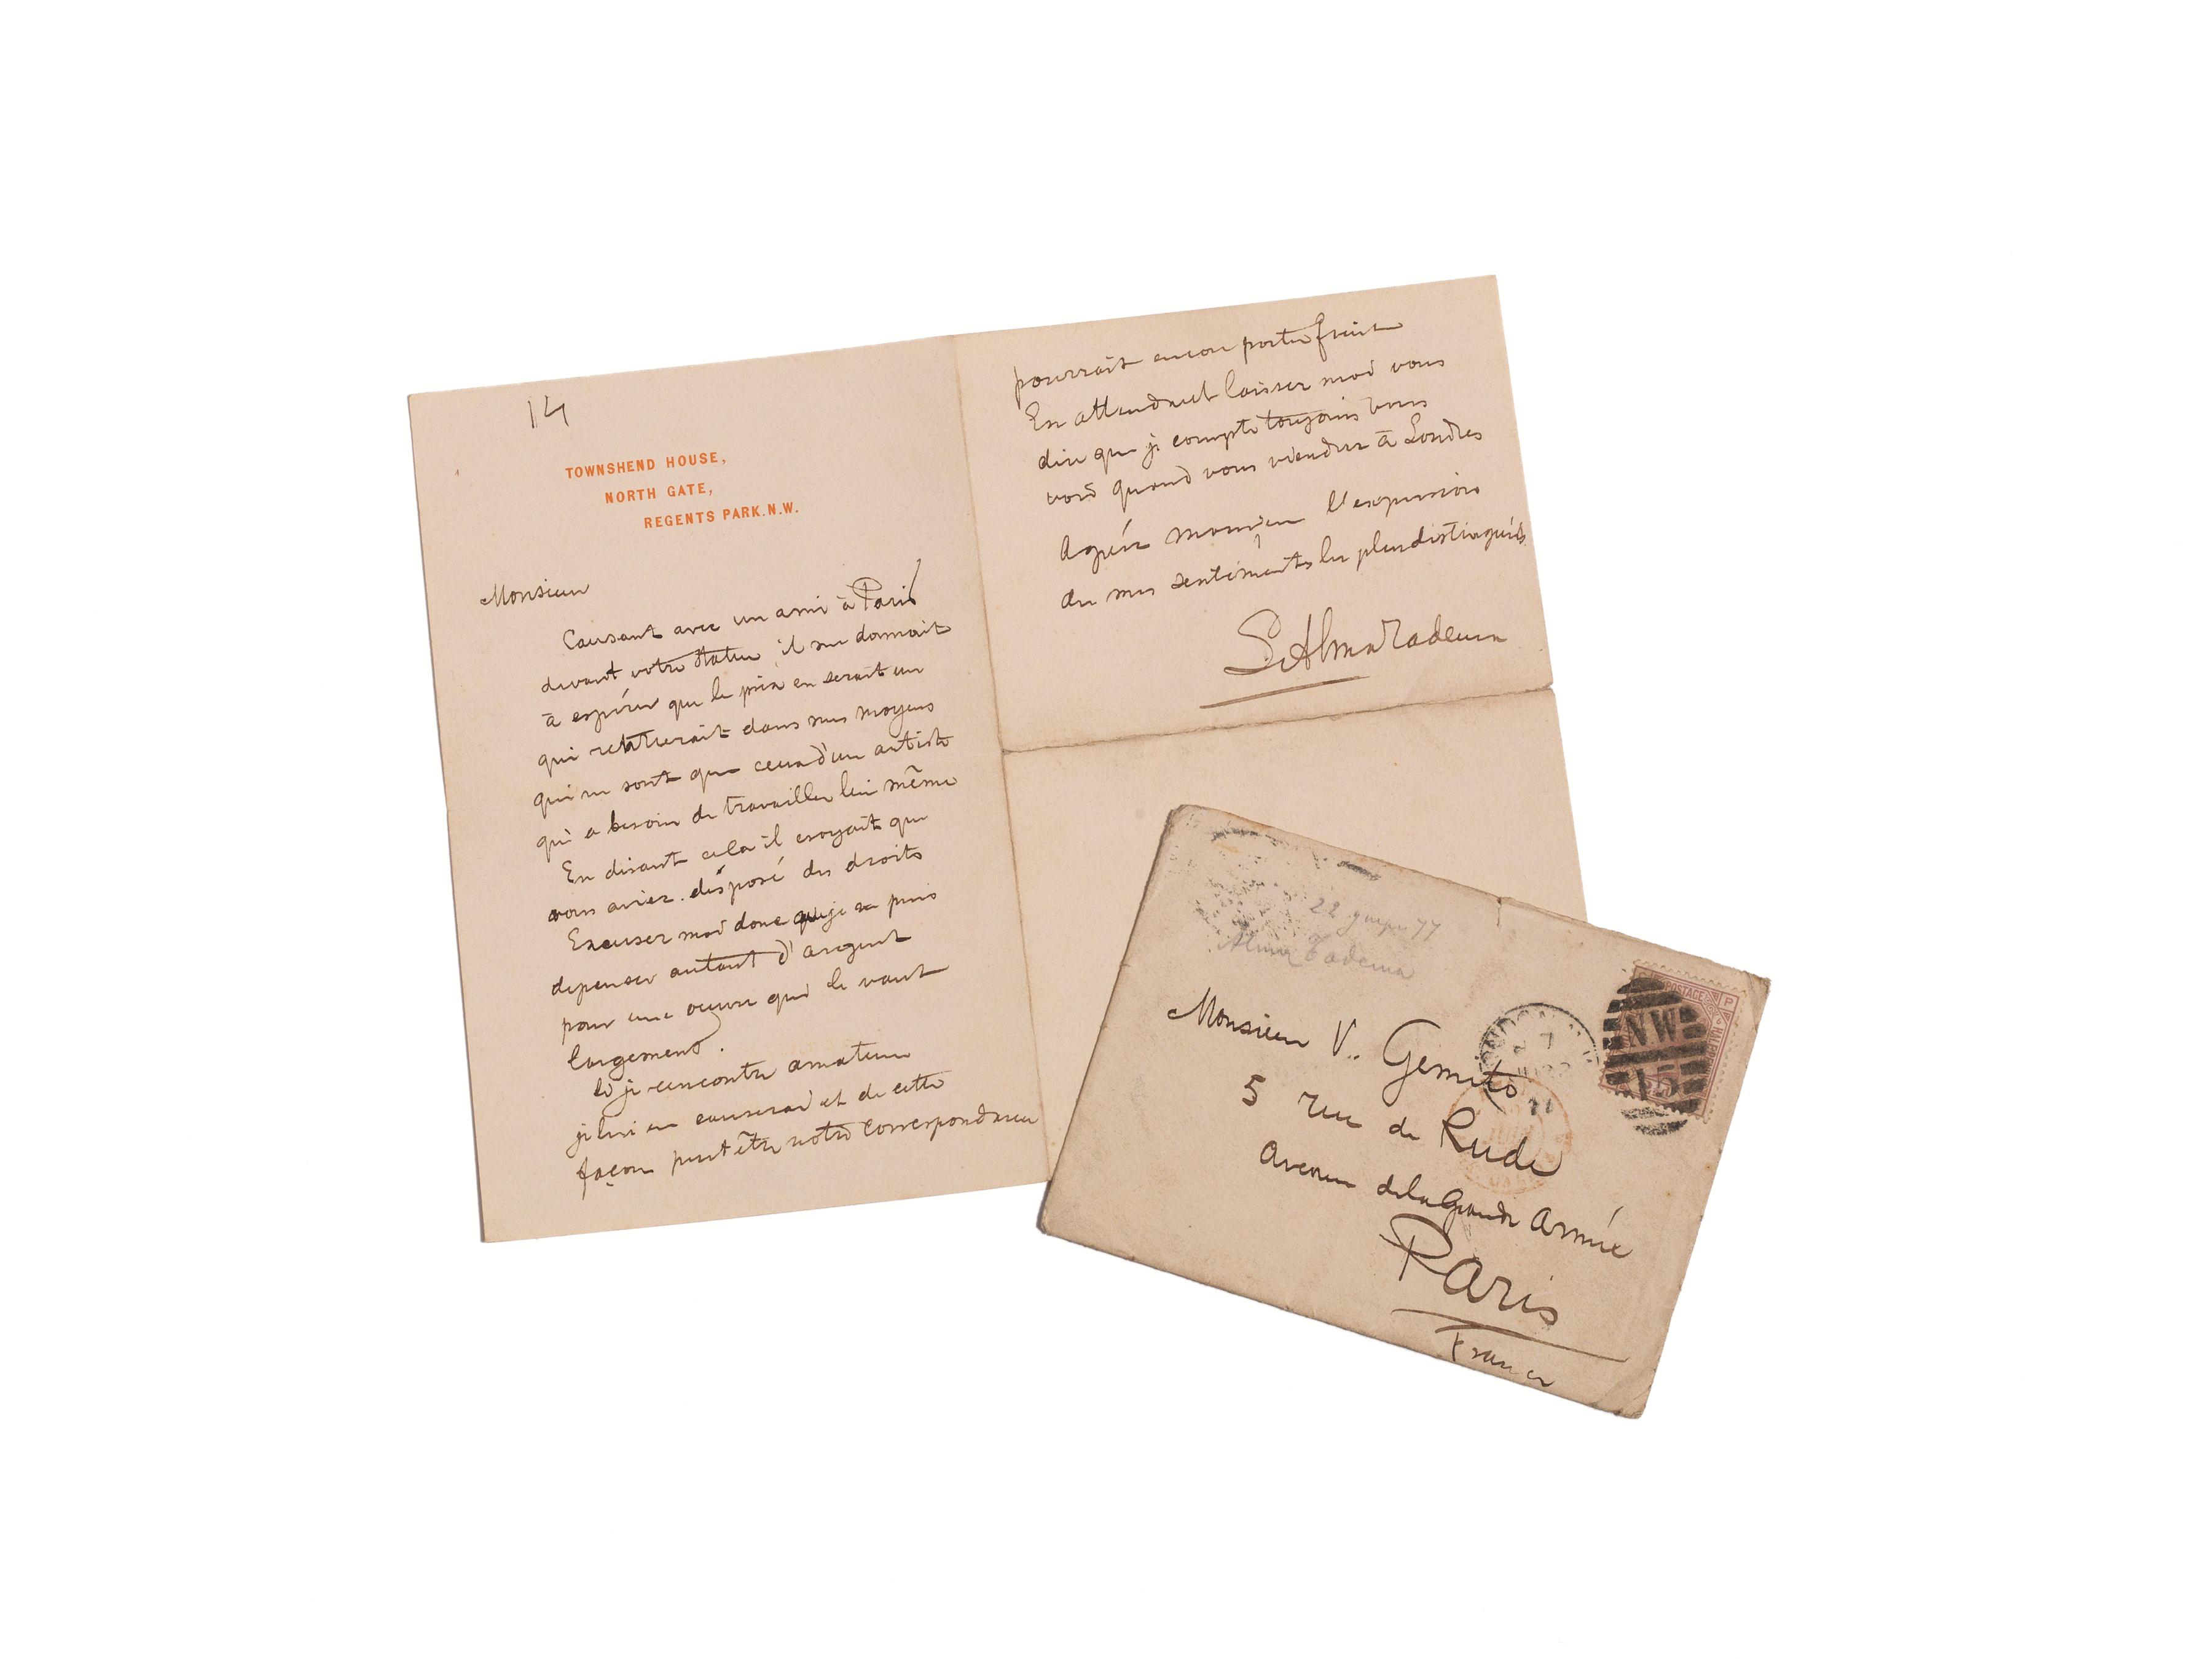 14
TOWNSHEND HOUSE,
NORTH GATE,
REGENTS PARK.N.W.
Monsieur
Causant avec un ami à Paris
devant votre statue, il me donnait
à espérer que le prix en serait un
qui rentrerait dans mes moyens
qui ne sont que ceux d'un artiste
qui a besoin de travailler lui même
En disant cela il croyait que
vous aviez disposé des droits
Excusez moi donc que je ne puis
depenser autant d'argent
pour une œuvre qui le vaut
largement.
Si je rencontre amateur
je lui en causerai et de cette
façon peut être notre correspondance
pourrait encore porter fruit
En attendant laissez moi vous
dire que je compte toujours vous
voir quand vous viendrez à Londres
Agréez monsieur l'expression
de mes sentiments les plus distingués
L Alma Tadema
22 77
Alma Tadema
Monsieur V. Gemito
5 rue de Rude
Avenue de la Grande Armée
Paris
France
POSTAGE
NW
15